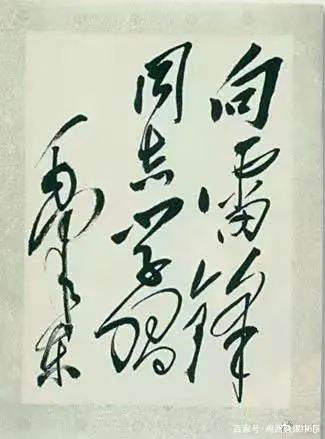 向雷锋
同志学习
毛泽东
百家号/